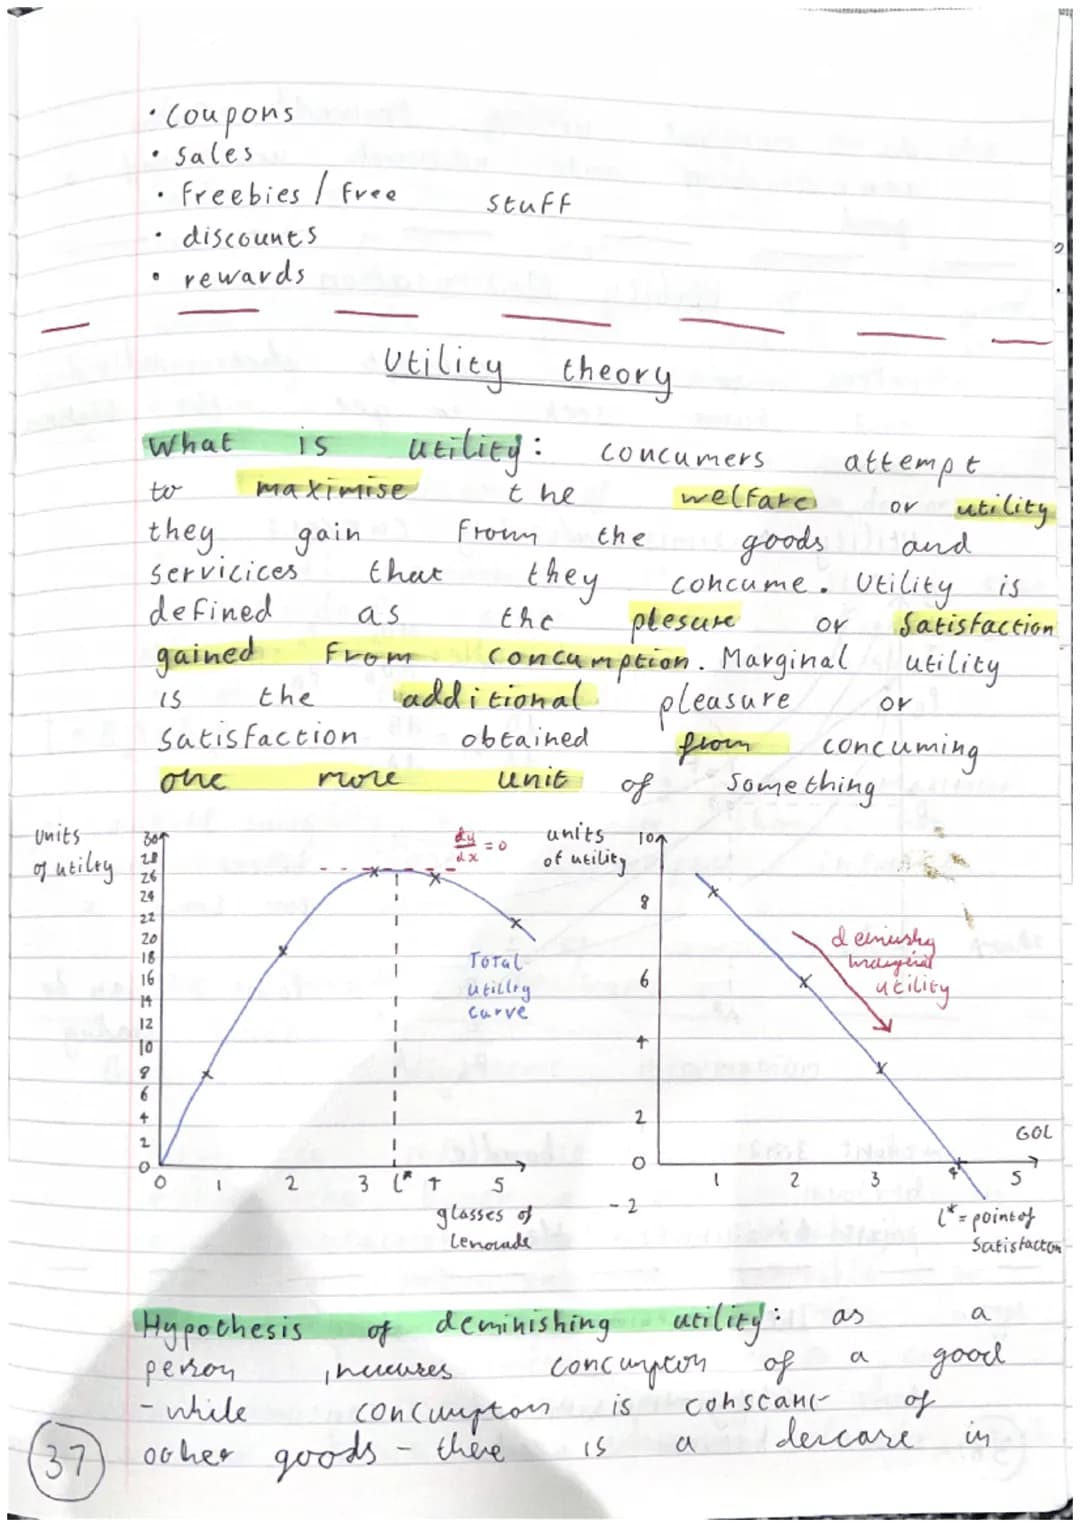 • Coupons
• sales
• freebies / free stuff
• discounts
• rewards
Utility theory
What is utility: concumers attempt
to maximise the welfare or utility
they gain from the goods and
servicices that they concume. Utility is
defined as the plesure or satisfaction
gained from concumption. Marginal utility
is the additional pleasure or
satisfaction obtained from concuming
one more unit of something
units
of utility
30
28
26
24
22
20
18
16
14
12
10
8
6
4
2
0
dy/dx = 0
Total
utility
curve
0 1 2 3 L* 4 5
glasses of
lenocade
units
of utility
10
8
6
4
2
0
-2
deminishg
marginal
utility
GOL
1 2 3 4 5
L* = point of
satisfacton
Hypothesis of deminishing utility: as a
person increases concumpton of a good
- while concumpton is constant of
other goods - there is a decrase in
37